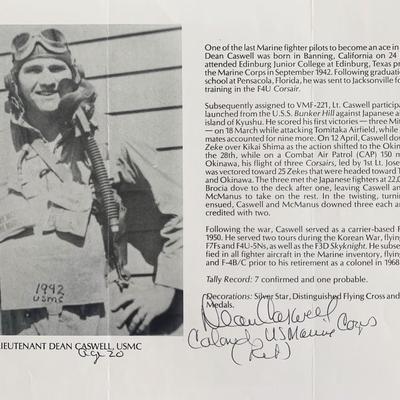 One of the last Marine fighter pilots to become an ace in
Dean Caswell was born in Banning, California on 24
attended Edinburg Junior College at Edinburg, Texas pr
the Marine Corps in September 1942. Following graduati
school at Pensacola, Florida, he was sent to Jacksonville for
training in the F4U Corsair.
Subsequently assigned to VMF-221, Lt. Caswell participa
launched from the U.S.S. Bunker Hill against Japanese ai
island of Kyushu. He scored his first victories — three Mit
— on 18 March while attacking Tomitaka Airfield, while
mates accounted for nine more. On 12 April, Caswell dow
Zeke over Kikai Shima as the action shifted to Okin
the 28th, while on a Combat Air Patrol (CAP) 150 m
Okinawa, his flight of three Corsairs, led by 1st Lt. Jose
was vectored toward 25 Zekes that were headed toward T
and Okinawa. The three met the Japanese fighters at 22,0
Brocia dove to the deck after one, leaving Caswell and
McManus to take on the rest. In the twisting, turnin
ensued, Caswell and McManus downed three each an
credited with two.
Following the war, Caswell served as a carrier-based F
1950. He served two tours during the Korean War, flying
F7Fs and F4U-5Ns, as well as the F3D Skyknight. He subse
fied in all fighter aircraft in the Marine inventory, flying
and F-4B/C prior to his retirement as a colonel in 1968
Tally Record: 7 confirmed and one probable.
Decorations: Silver Star, Distinguished Flying Cross and
Medals.
Dean Caswell
Colonel, US Marine Corps
(Ret)
1942
USMC
LIEUTENANT DEAN CASWELL, USMC
age 20